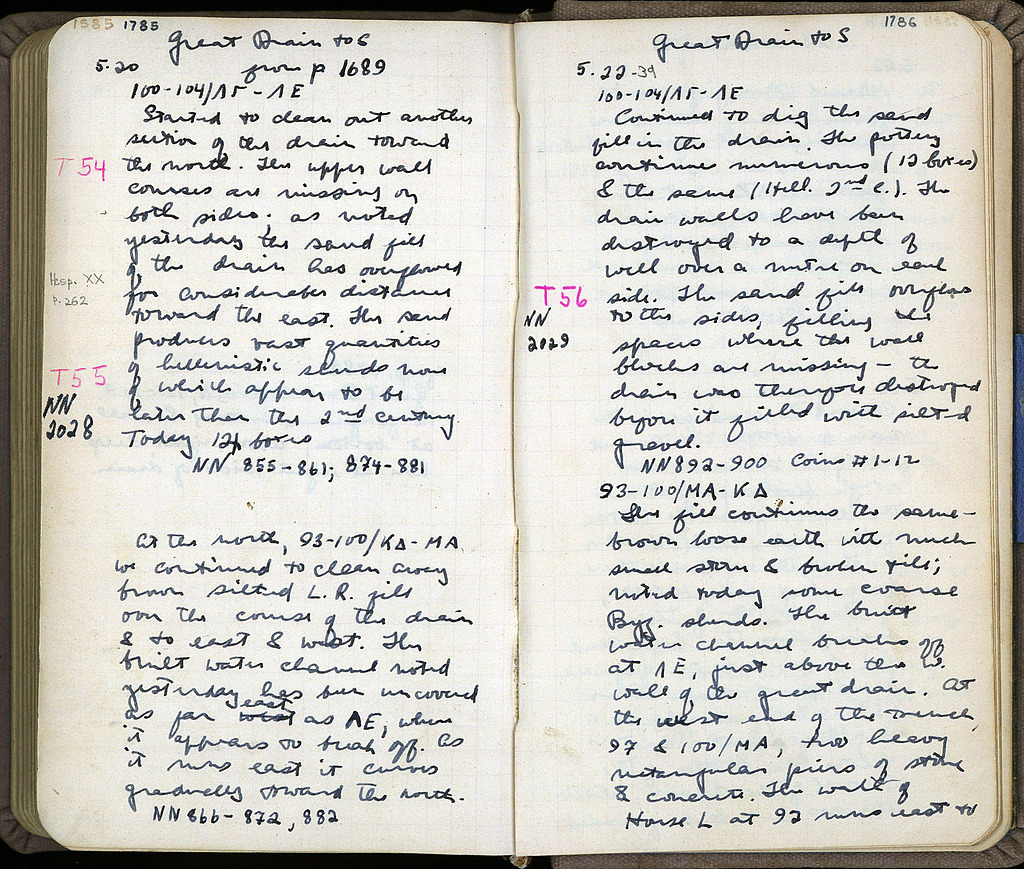 1585 1785
Great Drain to S
5.20 from p 1689
100-104/ΛΓ-ΛE
Started to clean out another
section of the drain toward
T 54
the north. The upper wall
courses are missing on
both sides. as noted
yesterday the sand fill
of the drain has overflowed
Hesp. XX
p. 262
for considerable distance
toward the east. The sand
produces vast quantities
of hellenistic sherds none
T 55
of which appear to be
NN
2028
later than the 2nd century.
Today 12 boxes
NN 855-861; 874-881
At the north, 93-100/KΔ-MA
we continued to clean away
brown silted L.R. fill
over the course of the drain
& to east & west. The
built water channel noted
yesterday has been uncovered
as far west east as ΛE, where
it appears to break off. As
it runs east it curves
gradually toward the north.
NN 866-872, 882
1786
Great Drain to S
5.22-39
100-104/ΛΓ-ΛE
Continued to dig the sand
fill in the drain. The pottery
continues numerous (12 boxes)
& the same (Hell. 2nd c.). The
drain walls have been
destroyed to a depth of
well over a metre on each
T 56
side. The sand fill overflows
NN
2029
to the sides, filling the
spaces where the wall
blocks are missing — the
drain was therefore destroyed
before it filled with silt &
gravel.
NN 892-900 Coins #1-12
93-100/MA-KΔ
The fill continues the same -
brown loose earth with much
small stone & broken tile;
noted today some coarse
Byz. sherds. The built
water channel breaks off
at ΛE, just above the W.
wall of the great drain. At
the west end of the trench,
97 & 100/MA, two heavy
rectangular piers of stone
& concrete. The wall of
House L at 92 runs east to